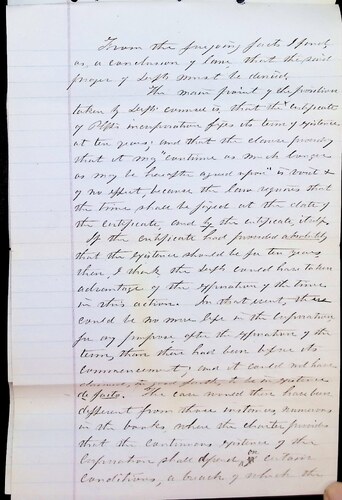 From the foregoing facts I find,
as a conclusion of law, that the said
prayer of Defts must be denied.
The main point of the position
taken by Defts counsel is, that the certificate
of Plffs incorporation fixes its term of existence
at ten years; and that the clause providing
that it may "continue as much longer
as may be hereafter agreed upon" is void &
of no effect, because the law requires that
the time shall be fixed at the date of
the certificate, and by the certificate itself.
If the certificate had provided absolutely
that the existence should be for ten years
then, I think the Defts could have taken
advantage of the expiration of the time
in this action. In that event, there
could be no more life in the Corporation
for any purpose after the expiration of the
term, than there had been before its
commencement; and it could not have
claimed, in good faith, to be in existence
de facto. The case would then have been
different from those instances, numerous
in the books, where the charter provides
that the continuous existence of the
Corporation shall depend on certain
conditions, a breach of which the